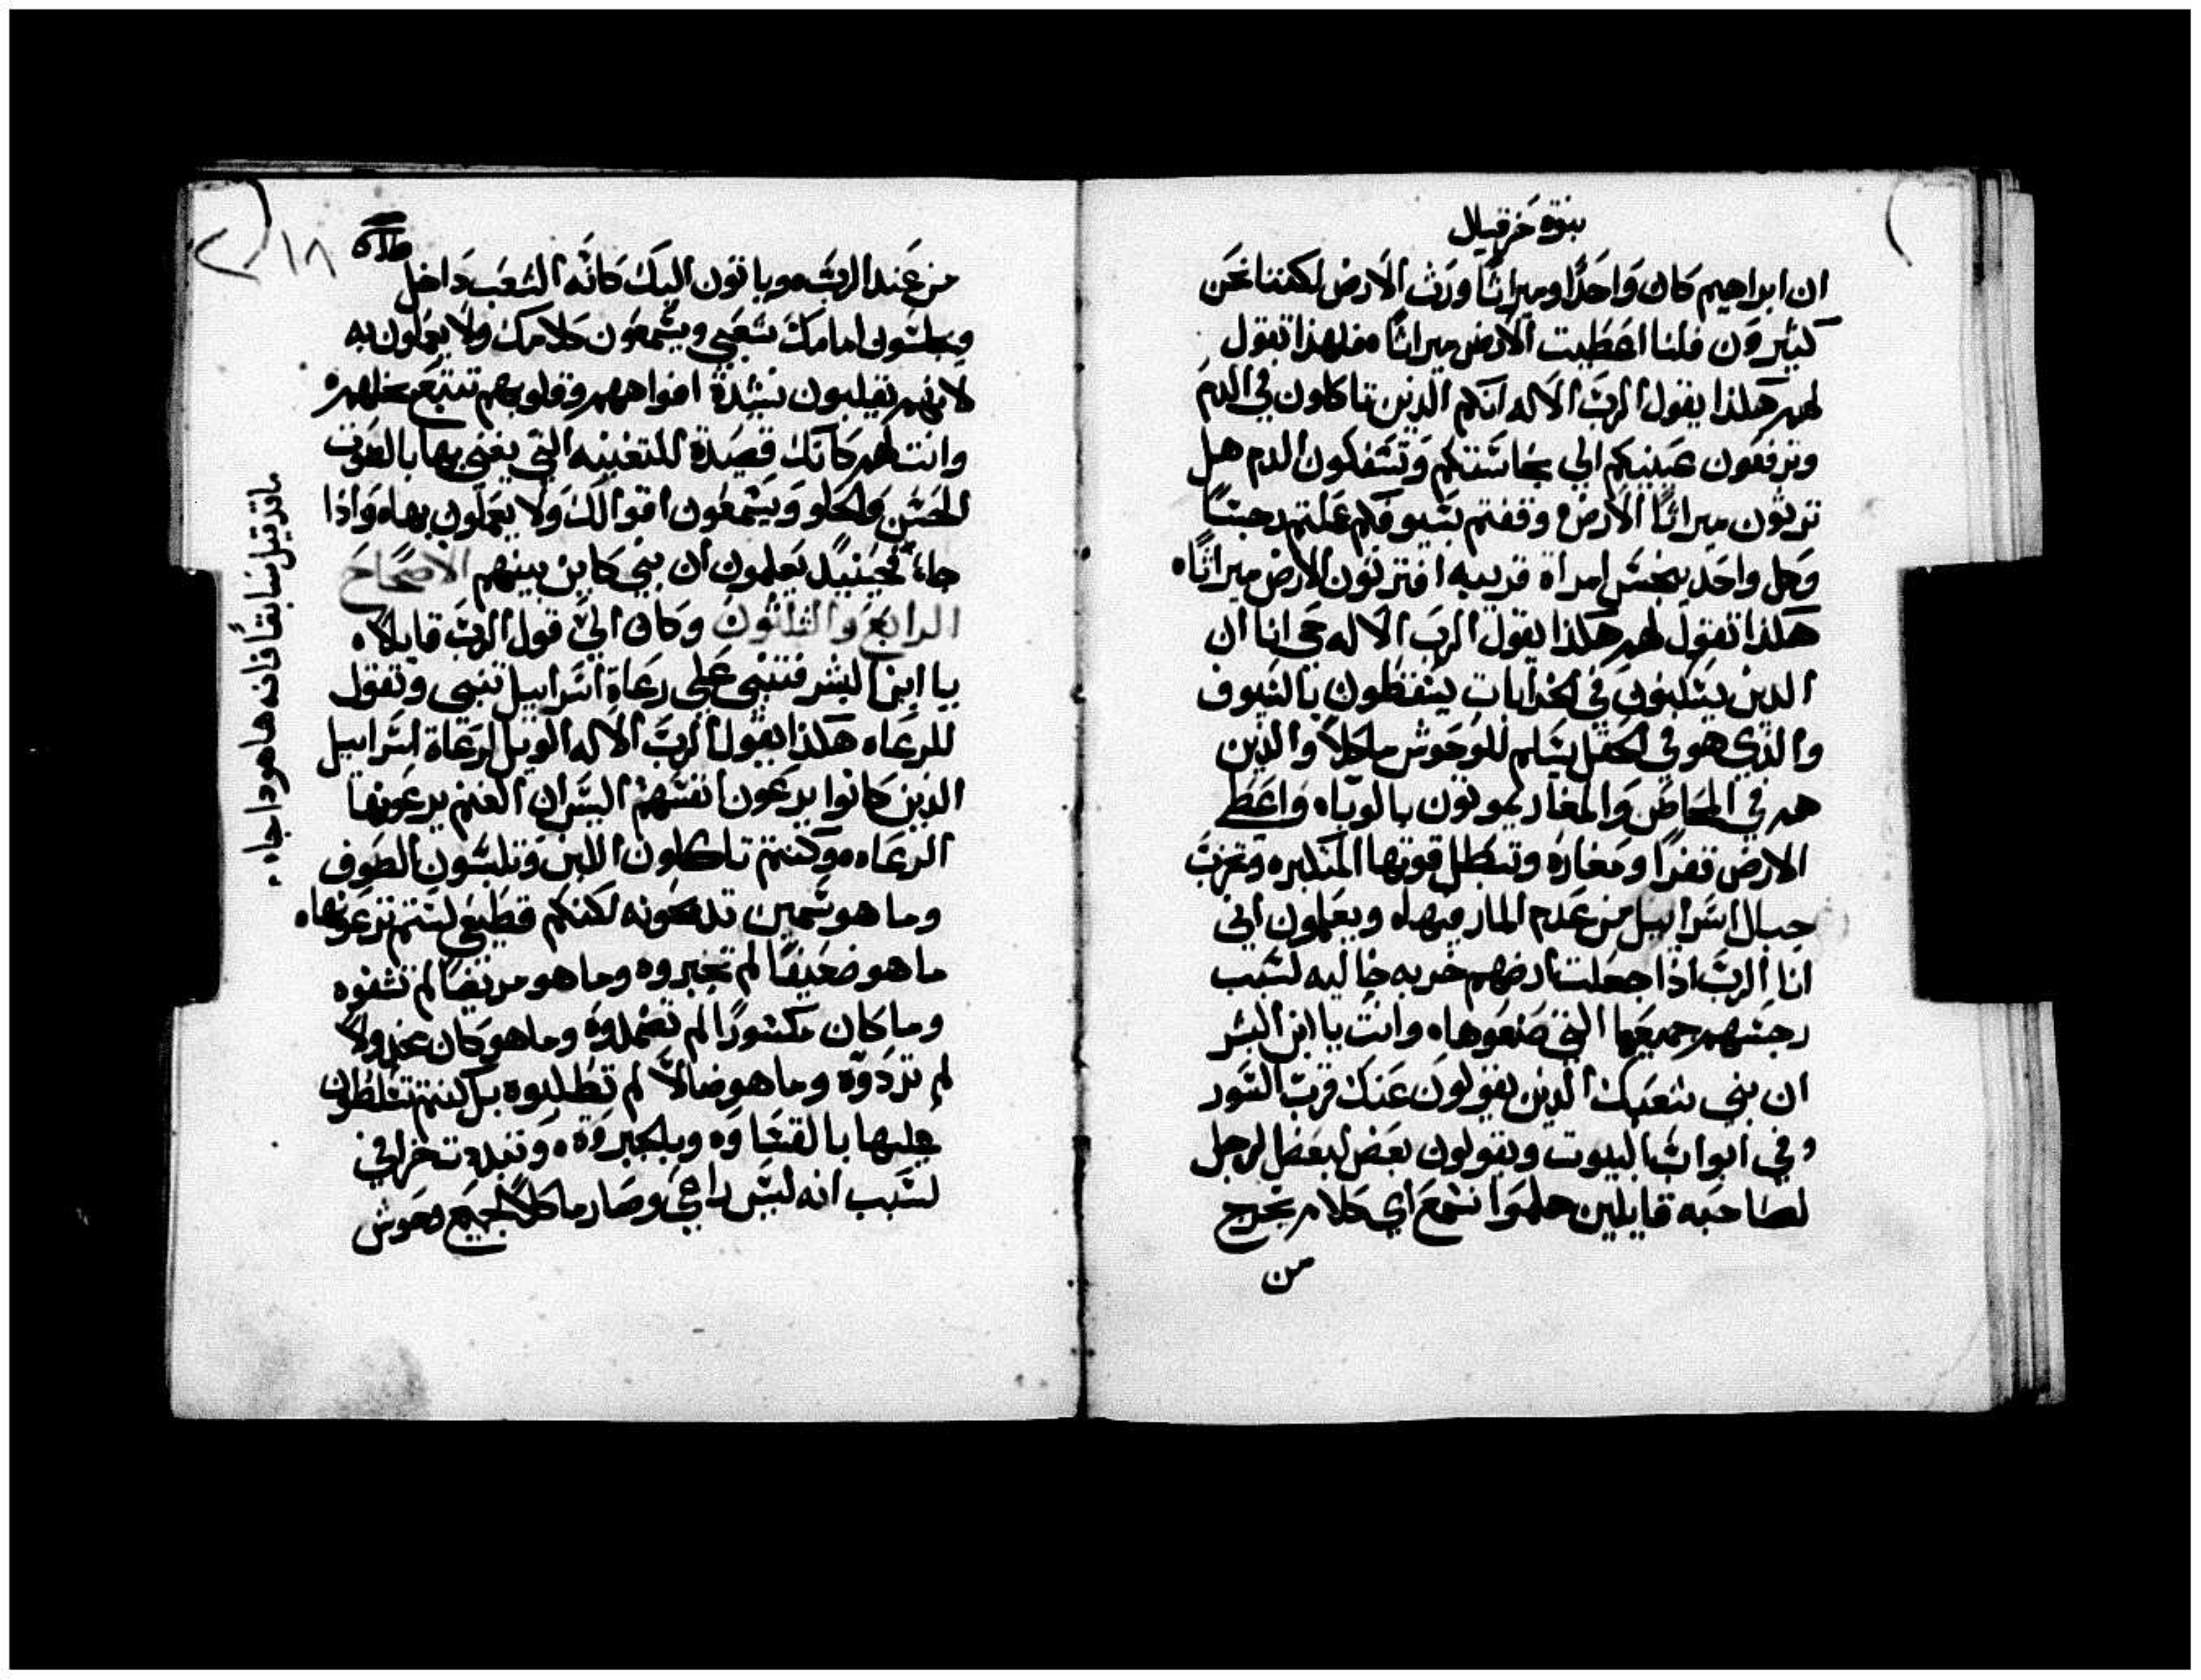 بنوة حزقيال
ان ابراهيم كان واحدًا وميراثًا ورث الارض لكننا نحن
كثيرون فلنا اعطيت الارض ميراثًا فلهذا تقول
لهم هكذا يقول الرب الاله انكم الذين تاكلون في الدم
وترفعون عينيكم الي نجاستكم وتسفكون الدم هل
ترثون ميراثًا الارض وقفتم بسيوفكم عملتم رجسًا
وكل واحد نجس امراة قريبه افترثون الارض ميراثًا
هكذا تقول لهم هكذا يقول الرب الاله حي انا ان
الذين يسكنون في الخرابات يسقطون بالسيوف
والذي هو في الحقل يسلم للوحوش ماكلاً والذين
هم في المحاصن والمغاير يموتون بالوباه واعطي
الارض قفرًا ومغاره وتبطل قوتها المتكبره وتخرب
جبال اسراييل من عدم المار فيها ويعلمون اني
انا الرب اذا جعلت ارضهم خربه خاليه لسبب
رجسهم جميعها التي صنعوها وانت يا ابن البشر
ان بني شعبك الذين يقولون عنك قرب السور
وفي ابواب البيوت ويقولون بعض لبعض الرجل
لصاحبه قايلين هلموا نسمع اي كلام يخرج
من
١٨
من عند الرب وياتون اليك كانه الشعب داخل
ويجلسون امامك شعبي ويسمعون كلامك ولا يعملون به
لانهم يقلبون نشيدة افواههم وقلوبهم تتبع بخلهم
وانت لهم كانك قصيدة للتغنيه التي يغني بها بالصوت
الحسن والحلو ويسمعون اقوالك ولا يعملون بها واذا
جاء فحينيد يعلمون ان بني كاين بينهم الاصحاح
الرابع والثلثون وكان الي قول الرب قايلاً
يا ابن البشر فتنبي علي رعاة اسراييل تنبي وتقول
للرعاه هكذا يقول الرب الاله الويل لرعاة اسراييل
الذين كانوا يرعون انفسهم اليس ان الغنم يرعونها
الرعاه وكنتم تاكلون اللبن وتلبسون الصوف
وما هو سمين تدبحونه لكنكم قطيعي لستم ترعونها
ما هو ضعيفًا لم تجبروه وما هو مريضًا لم تشفوه
وما كان مكسورًا لم تضمدوه وما هو كان مخدولاً
لم تردوه وما هو ضالاً لم تطلبوه بل كنتم تتسلطون
عليها بالقساوه وبالجبروة وتبددت خرافي
لسبب انه ليس راعي وصار ماكلاً لجميع وحوش
ما قد قيل سابقًا فانه ها هودا جاء